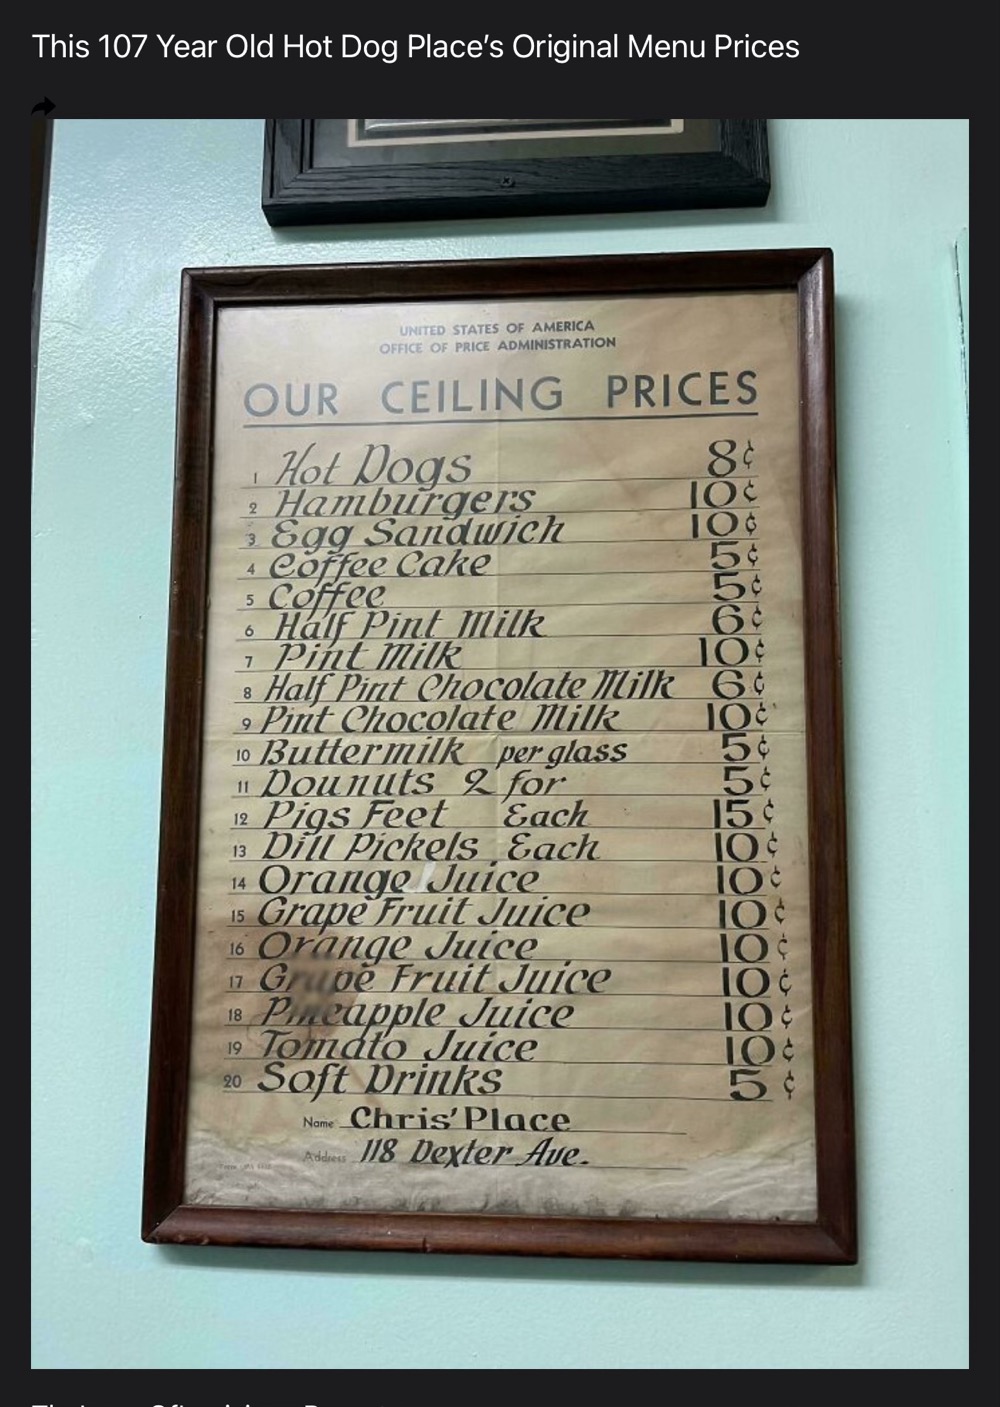 This 107 Year Old Hot Dog Place's Original Menu Prices
UNITED STATES OF AMERICA
OFFICE OF PRICE ADMINISTRATION
OUR CEILING PRICES
1 Hot Dogs 8¢
2 Hamburgers 10¢
3 Egg Sandwich 10¢
4 Coffee Cake 5¢
5 Coffee 5¢
6 Half Pint Milk 6¢
7 Pint Milk 10¢
8 Half Pint Chocolate Milk 6¢
9 Pint Chocolate Milk 10¢
10 Buttermilk per glass 5¢
11 Dounuts 2 for 5¢
12 Pigs Feet Each 15¢
13 Dill Pickels Each 10¢
14 Orange Juice 10¢
15 Grape Fruit Juice 10¢
16 Orange Juice 10¢
17 Grape Fruit Juice 10¢
18 Pineapple Juice 10¢
19 Tomato Juice 10¢
20 Soft Drinks 5¢
Name Chris' Place
Address 118 Dexter Ave.